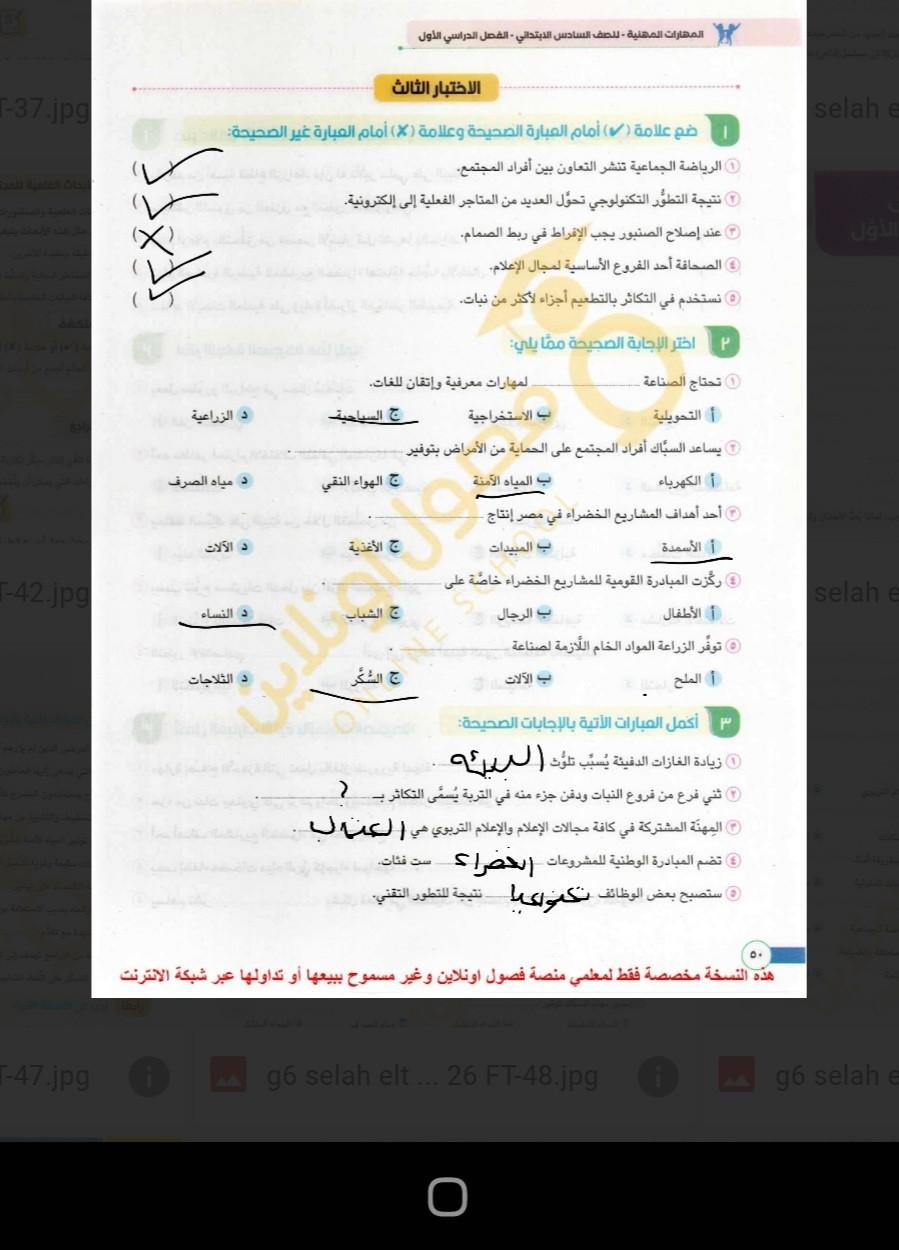 المهارات المهنية - للصف السادس الابتدائي - الفصل الدراسي الأول
الاختبار الثالث
١ ضع علامة (✓) أمام العبارة الصحيحة وعلامة (✗) أمام العبارة غير الصحيحة:
١ الرياضة الجماعية تنشر التعاون بين أفراد المجتمع. (✓)
٢ نتيجة التطوُّر التكنولوجي تحوَّل العديد من المتاجر الفعلية إلى إلكترونية. (✓)
٣ عند إصلاح الصنبور يجب الإفراط في ربط الصمام. (✗)
٤ الصحافة أحد الفروع الأساسية لمجال الإعلام. (✓)
٥ نستخدم في التكاثر بالتطعيم أجزاء لأكثر من نبات. (✓)
٢ اختر الإجابة الصحيحة ممَّا يلي:
١ تحتاج الصناعة ............ لمهارات معرفية وإتقان للغات.
أ التحويلية ب الاستخراجية ج السياحية د الزراعية
٢ يساعد السبَّاك أفراد المجتمع على الحماية من الأمراض بتوفير ............ .
أ الكهرباء ب المياه الآمنة ج الهواء النقي د مياه الصرف
٣ أحد أهداف المشاريع الخضراء في مصر إنتاج ............ .
أ الأسمدة ب المبيدات ج الأغذية د الآلات
٤ ركَّزت المبادرة القومية للمشاريع الخضراء خاصَّة على ............ .
أ الأطفال ب الرجال ج الشباب د النساء
٥ توفِّر الزراعة المواد الخام اللَّازمة لصناعة ............ .
أ الملح ب الآلات ج السُّكَّر د الثلاجات
٣ أكمل العبارات الآتية بالإجابات الصحيحة:
١ زيادة الغازات الدفيئة يُسبِّب تلوُّث البيئه .
٢ ثني فرع من فروع النبات ودفن جزء منه في التربة يُسمَّى التكاثر بـ ؟ .
٣ المِهنَة المشتركة في كافة مجالات الإعلام والإعلام التربوي هي .
٤ تضم المبادرة الوطنية للمشروعات الخضراء ست فئات.
٥ ستصبح بعض الوظائف تكنولوجيا نتيجة للتطور التقني.
٥٠
هذه النسخة مخصصة فقط لمعلمي منصة فصول اونلاين وغير مسموح ببيعها أو تداولها عبر شبكة الانترنت
فصول اونلاين
ONLINE SCHOOL
T-37.jpg
selah el
T-42.jpg
selah el
T-47.jpg
g6 selah elt ... 26 FT-48.jpg
g6 selah e